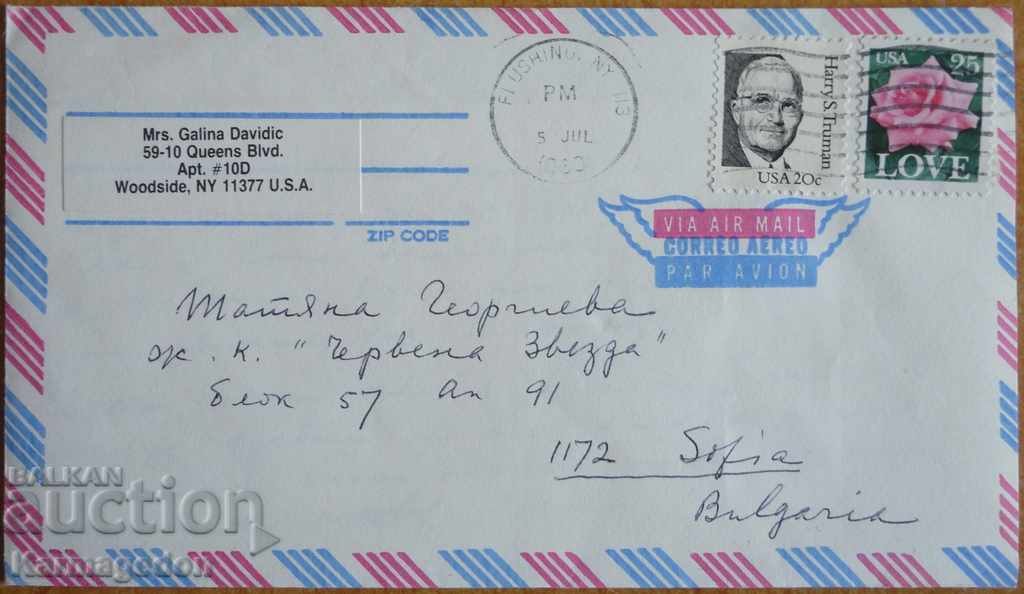 Mrs. Galina Davidic
59-10 Queens Blvd.
Apt. #10D
Woodside, NY 11377 U.S.A.
ZIP CODE
FLUSHING, NY 113
PM
5 JUL
Harry S. Truman
USA 20c
USA 25
LOVE
VIA AIR MAIL
CORREO AEREO
PAR AVION
Татяна Георгиева
ж.к. "Червена Звезда"
блок 57 ап 91
1172 Sofia
Bulgaria
BALKAN
auction
Karmagedon